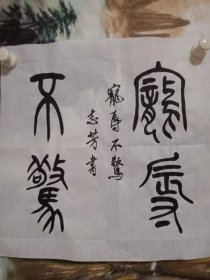 寵辱
不驚
寵辱不驚
志芳書